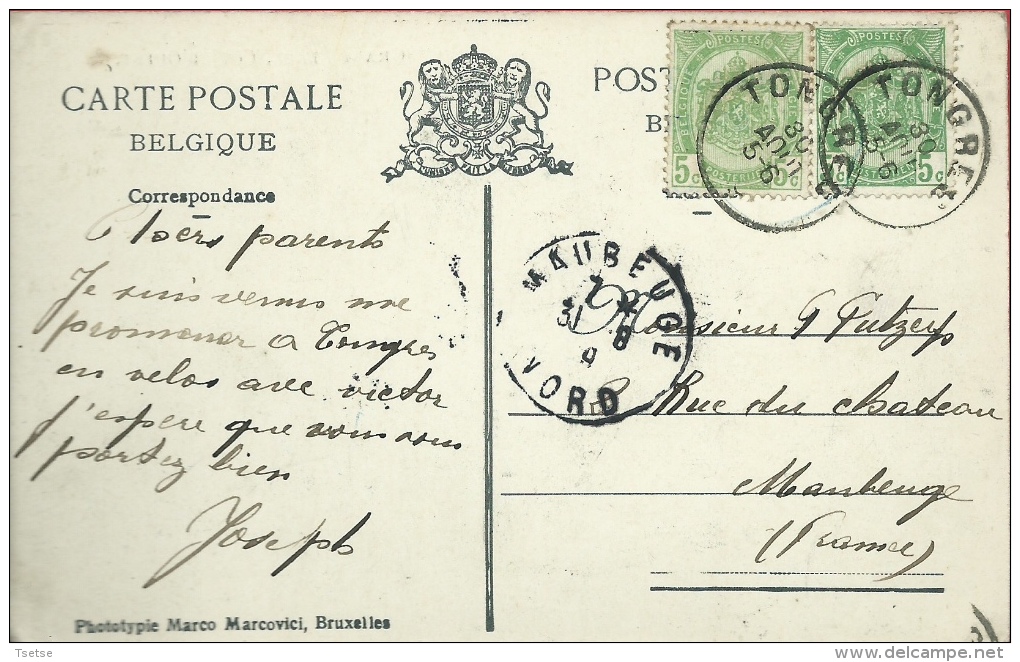 CARTE POSTALE
BELGIQUE
POST
B
POSTES
BELGIQUE
5c 5c
POSTERIJEN
POSTES
5c
L'UNION FAIT LA FORCE
TONGRES
30
AOUT
TONGRES
30
AOUT
Correspondance
Chers parents
Je suis venus me
promener a Tongres
en velos avec victor
j'espere que vous vous
portez bien
Joseph
MAUBEUGE
31 8
NORD
Monsieur G Putzeys
Rue du chateau
Maubeuge
(France)
Phototypie Marco Marcovici, Bruxelles
Tsetse
delcampe.net